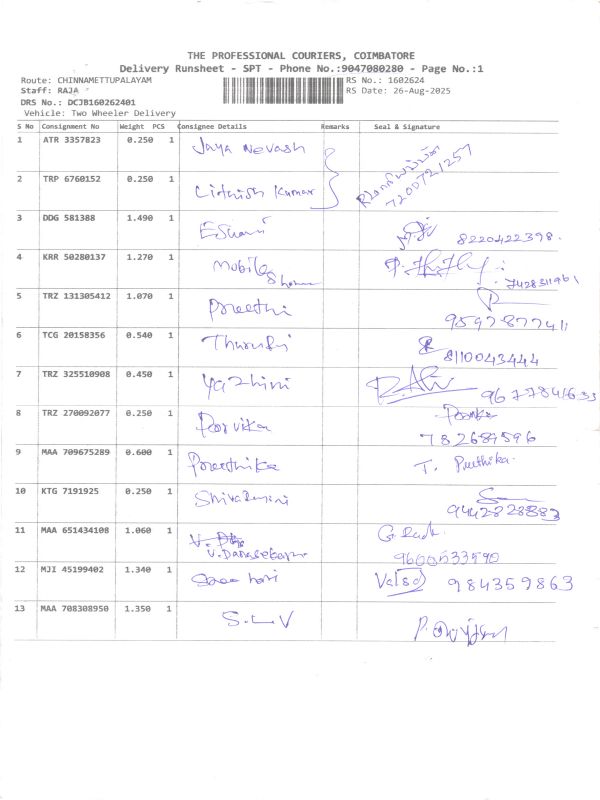 THE PROFESSIONAL COURIERS, COIMBATORE
Delivery Runsheet - SPT - Phone No.:9047080280 - Page No.:1
Route: CHINNAMETTUPALAYAM RS No.: 1602624
Staff: RAJA RS Date: 26-Aug-2025
DRS No.: DCJB160262401
Vehicle: Two Wheeler Delivery
S No Consignment No Weight PCS Consignee Details Remarks Seal & Signature
1 ATR 3357823 0.250 1 Jaya Nevash
7200721257
2 TRP 6760152 0.250 1 Lithish Kumar
3 DDG 581388 1.490 1 8220422398.
4 KRR 50280137 1.270 1 Mobile
5 TRZ 131305412 1.070 1 Preethi
9597877411
6 TCG 20158356 0.540 1
8110043444
7 TRZ 325510908 0.450 1 Yazhini 9677841633
8 TRZ 270092077 0.250 1 Porvika
782689596
9 MAA 709675289 0.600 1 Preethika T. Preethika.
10 KTG 7191925 0.250 1
9442828883
11 MAA 651434108 1.060 1
V. Danasekaran 9600533590
12 MJI 45199402 1.340 1 Sree hari Valsa 984359863
13 MAA 708308950 1.350 1 S.L.V